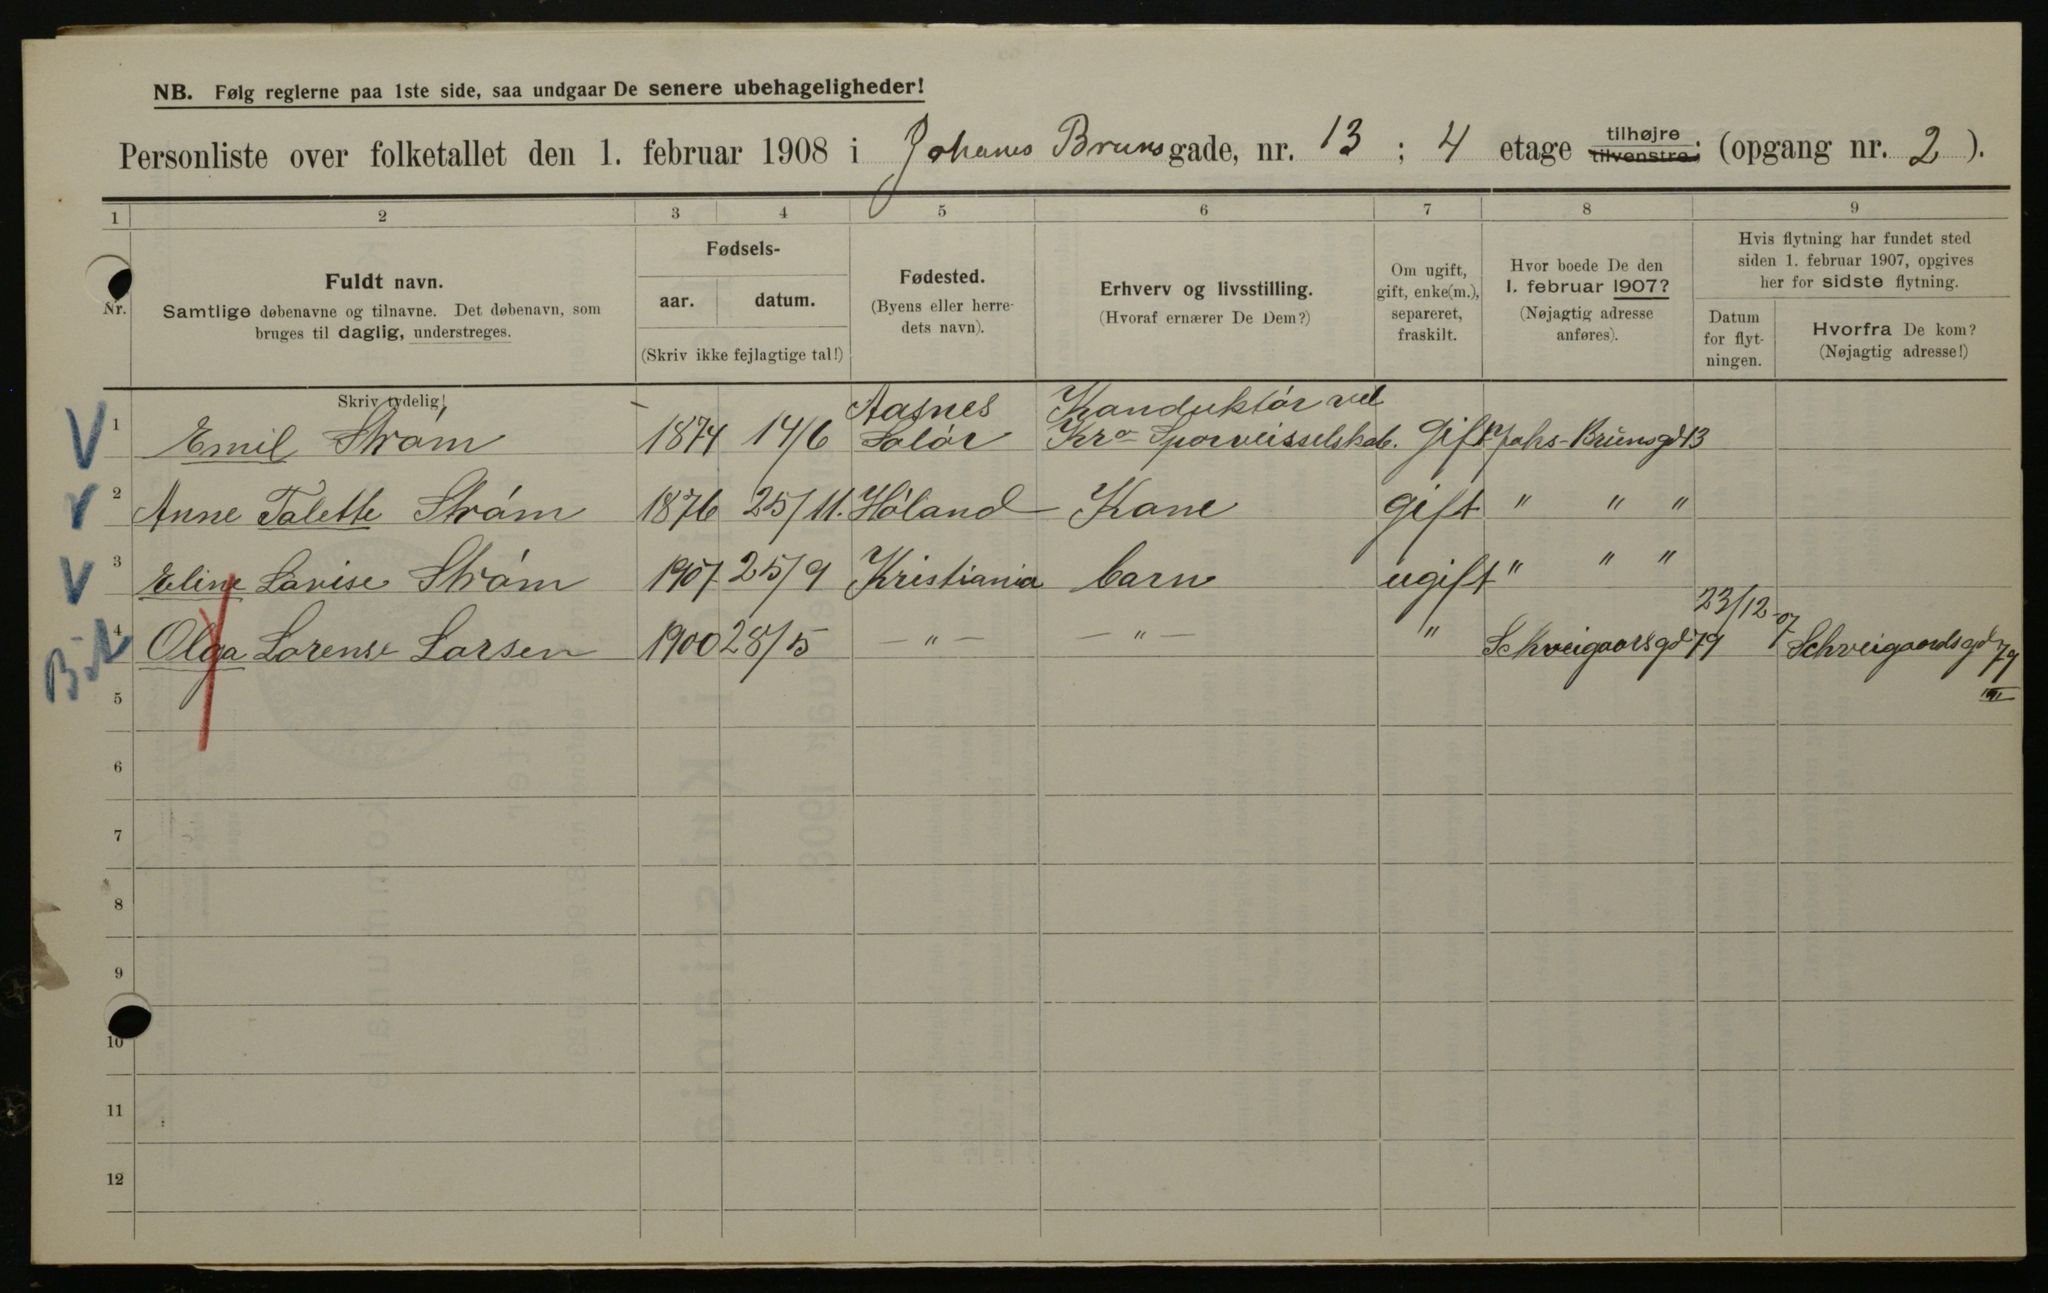 NB. Følg reglerne paa 1ste side, saa undgaar De senere ubehageligheder!
Personliste over folketallet den 1. februar 1908 i Johanes Brunsgade, nr. 13 ; 4 etage tilhøjre tilvenstre; (opgang nr. 2 ).
1 2 3 4 5 6 7 8 9
Nr.
Fuldt navn.
Samtlige døbenavne og tilnavne. Det døbenavn, som
bruges til daglig, understreges.
Skriv tydelig!
Fødsels-
aar. datum.
(Skriv ikke fejlagtige tal!)
Fødested.
(Byens eller herre-
dets navn).
Erhverv og livsstilling.
(Hvoraf ernærer De Dem?)
Om ugift,
gift, enke(m.),
separeret,
fraskilt.
Hvor boede De den
1. februar 1907?
(Nøjagtig adresse
anføres).
Hvis flytning har fundet sted
siden 1. februar 1907, opgives
her for sidste flytning.
Datum
for flyt-
ningen.
Hvorfra De kom?
(Nøjagtig adresse!)
Aasnes Konduktör ved
V 1 Emil Ström 1874 14/6 Solör Kra Sporveisselskab. Gift Johs-Brünsgd 13
V 2 Anne Talette Ström 1876 25/11. Höland Kone gift " " "
V 3 Eline Lovise Ström 1907 25/9 Kristiania barn ugift " " "
4 Olga Lorense Larsen 1900 28/5 — " — — " — " Schveigaarsgd 79 23/12-07 Schveigaardsgd 79
III
5
6
7
8
9
10
11
12